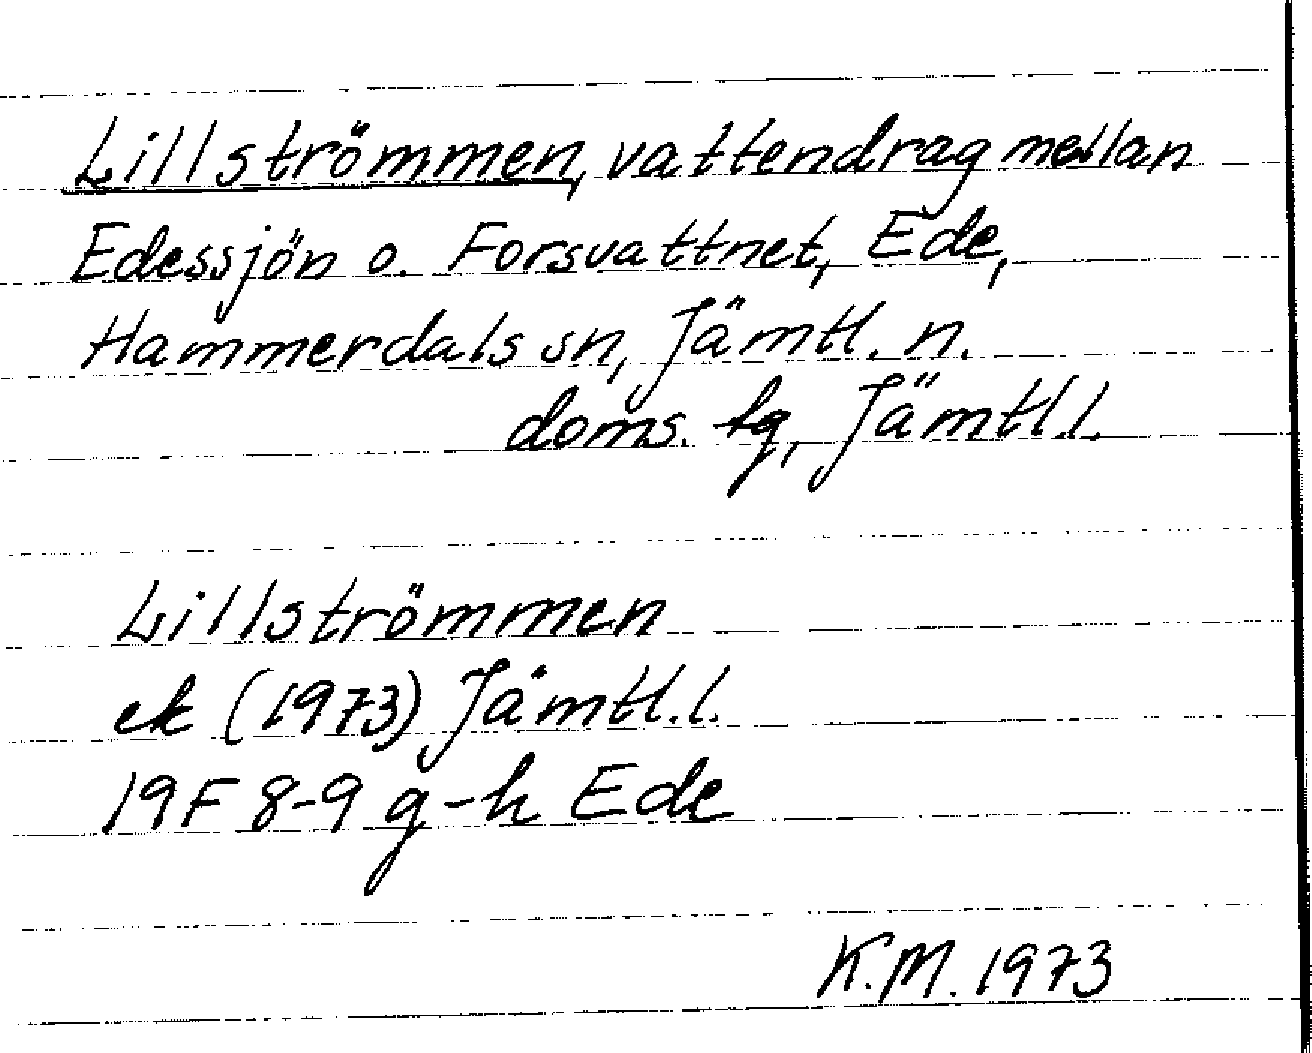 Lillströmmen, vattendrag mellan
Edessjön o. Forsvattnet, Ede,
Hammerdals sn, Jämtl. n.
doms. tg, Jämtl.l.
Lillströmmen
ek (1973) Jämtl.l.
19F 8-9 g-h Ede
K.M. 1973